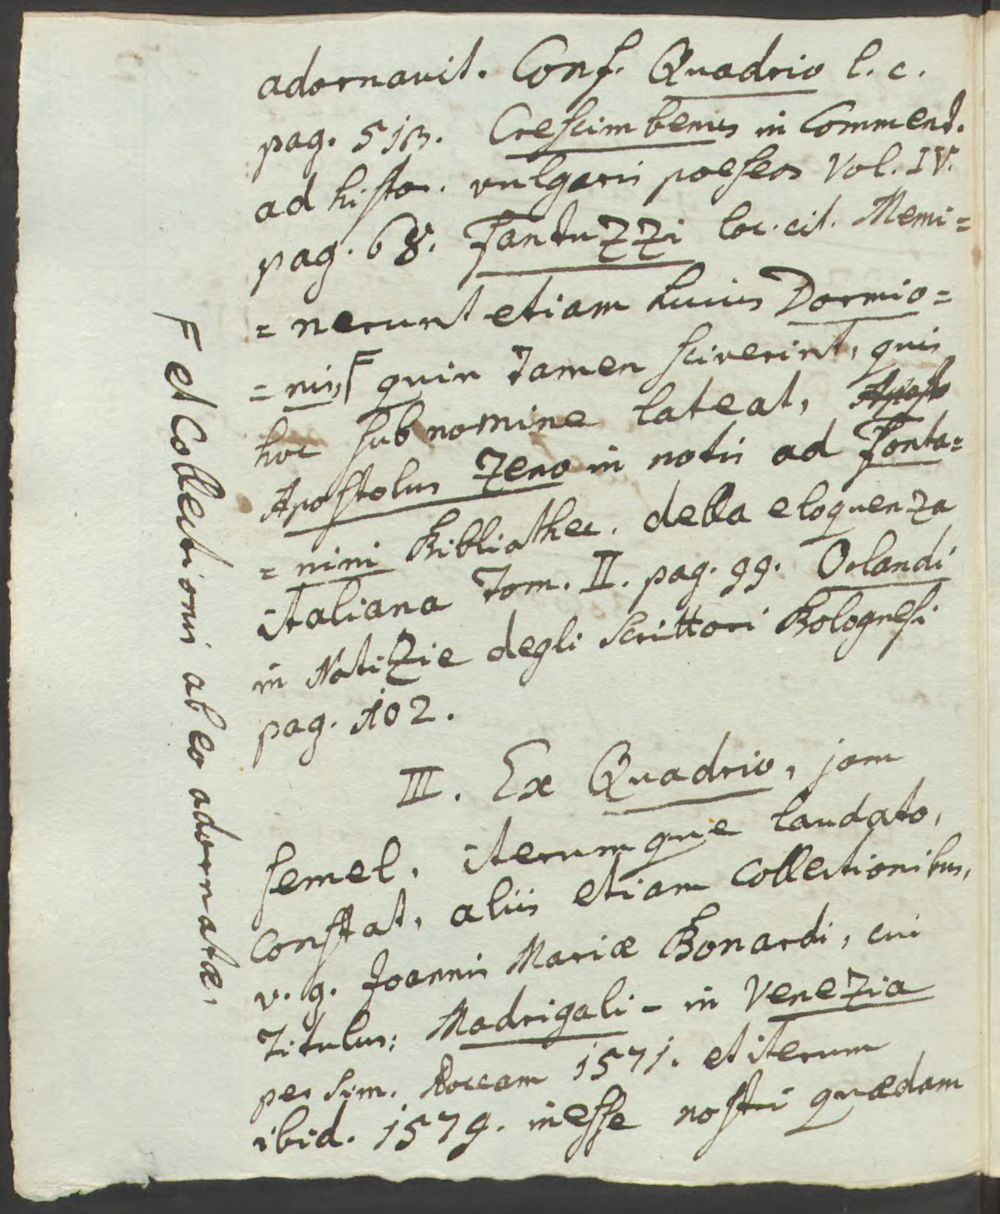 adornavit. Conf. Quadrio l. c.
pag. 513. Crescimbenus in Comment.
ad histor. vulgaris poeseos Vol. IV.
pag. 68. Fantuzzi loc. cit. Memi=
=nerunt etiam huius Dormio=
=nis,F quin tamen sciverint, quis
hoc sub nomine lateat,
Apostolus Zeno in notis ad Fonta=
=nini Bibliothec. della eloquenza
italiana Tom. II. pag. 99. Orlandi
in Notizie degli Scrittori Bolognesi
pag. 102.
III. Ex Quadrio, jam
semel, iterumque laudato,
constat, aliis etiam collectionibus,
v. g. Joannis Mariæ Bonardi, cui
titulus: Madrigali - in Venezia
per Sim. Roccam 1571. et iterum
ibid. 1579. inesse nostri quædam
F et Collectionis ab eo adornatæ,